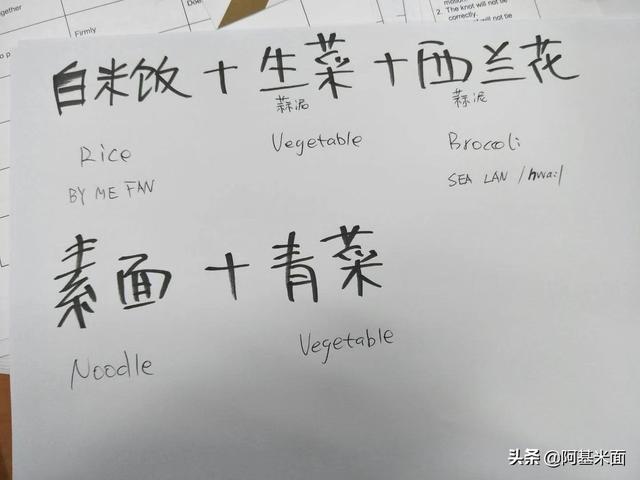 ogether
Firmly
Doe
2. The knot will not be
correctly.
1. The knot will not be
白米饭 + 生菜 + 西兰花
蒜泥 蒜泥
Rice Vegetable Brocoli
BY ME FAN SEA LAN /hwai/
素面 + 青菜
Noodle Vegetable
头条 @阿基米面